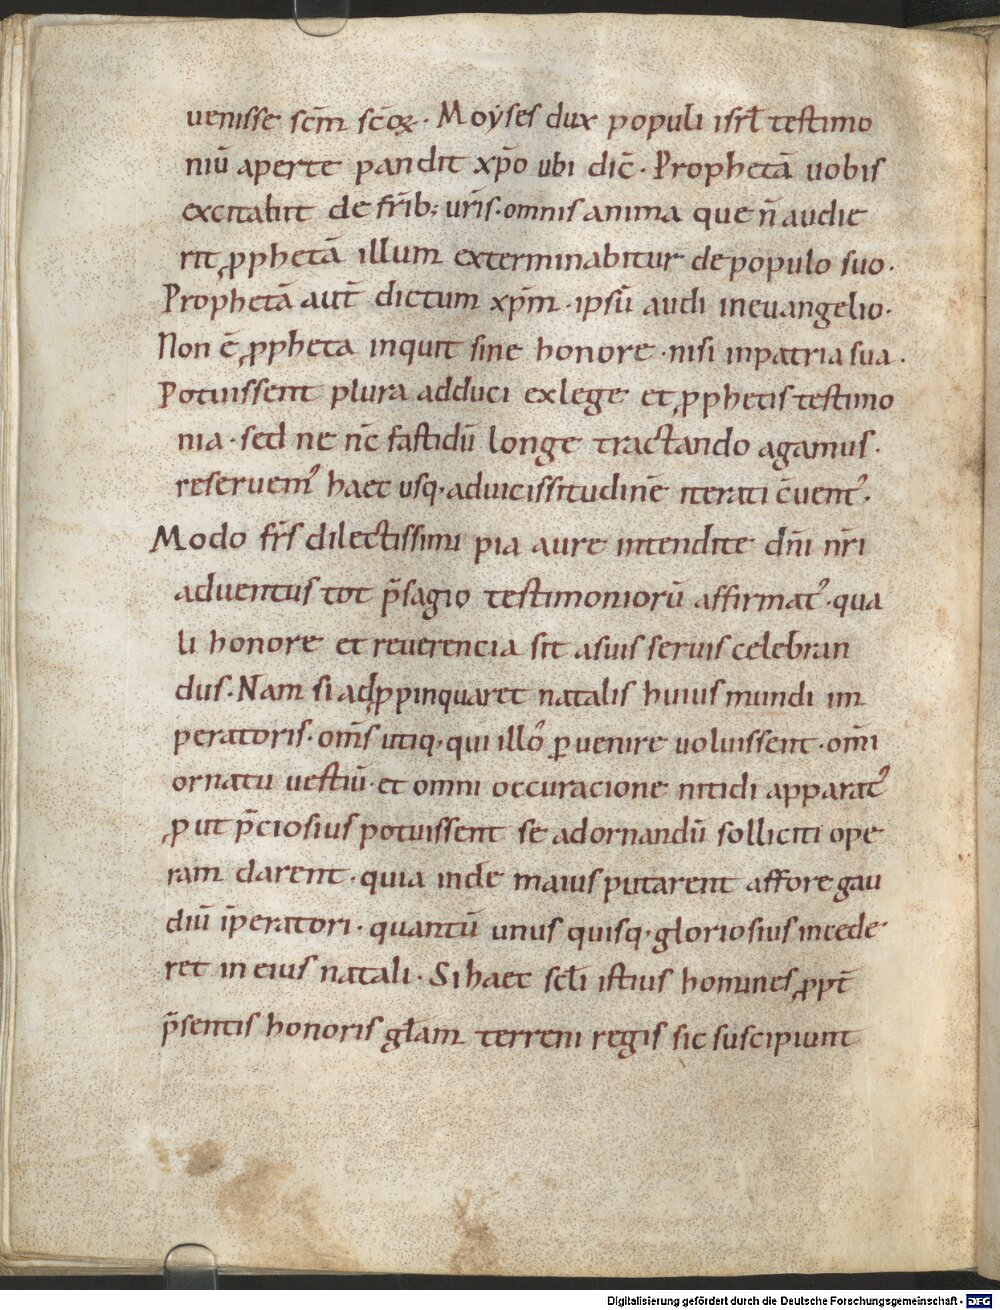 uenisse scm̄ scōꝝ · Moẏses dux populi isrł testimo
niū aperte pandit xp̄o ubi dic̄ · Prophetā uobis
excitabit de frīb; urīs · omnis anima que n̄ audie
rit ꝓphetā illum exterminabitur de populo suo ·
Prophetā aut̄ dictum xp̄m · ipsū audi ineuangelio ·
Non ē ꝓpheta inquit sine honore · nisi inpatria sua .
Potuissent plura adduci exlege et ꝓphetis testimo
nia · sed ne nc̄ fastidiū longe tractando agamus ·
reseruem᷒ haec usq· aduicissitudinē iterati c̄uent᷒ ·
Modo frs̄ dilectissimi pia aure intendite dn̄i nr̄i
aduentus tot p̄sagio testimoniorū affirmat᷒ · qua
li honore et reuerencia sit asuis seruis celebran
dus · Nam si adꝓpinquaret natalis huius mundi im
peratoris · om̄s utiq· qui illo᷒ ꝑuenire uoluissent · om̄i
ornatu uestiū · et omni occuracione nitidi apparat᷒
ꝓut p̄ciosius potuissent se adornandū solliciti ope
ram darent · quia inde maius putarent affore gau
diū īperatori · quantū unus quisq· gloriosius incede
ret in eius natali · Si haec scłi istius homines ꝓpt̄
p̄sentis honoris głam terreni regis sic suscipiunt
Digitalisierung gefördert durch die Deutsche Forschungsgemeinschaft - DFG